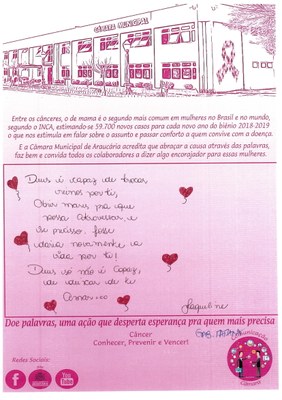 CÂMARA MUNICIPAL
Entre os cânceres, o de mama é o segundo mais comum em mulheres no Brasil e no mundo,
segundo o INCA, estimando se 59.700 novos casos para cada novo ano do biênio 2018-2019
o que nos estimula em falar sobre o assunto e passar conforto a quem convive com a doença.
E a Câmara Municipal de Araucária acredita que abraçar a causa através das palavras,
faz bem e convida todos os colaboradores a dizer algo encorajador para essas mulheres.
Deus é capaz de trocar
reinos por ti,
Abrir mares pra que
possa atravessar e
se preciso fosse
daria novamente a
vida por ti!
Deus só não é capaz,
de deixar de te
Amar...
Jaqueline
Doe palavras, uma ação que desperta esperança pra quem mais precisa
Câncer
Conhecer, Prevenir e Vencer!
Redes Sociais:
f
You
Tube